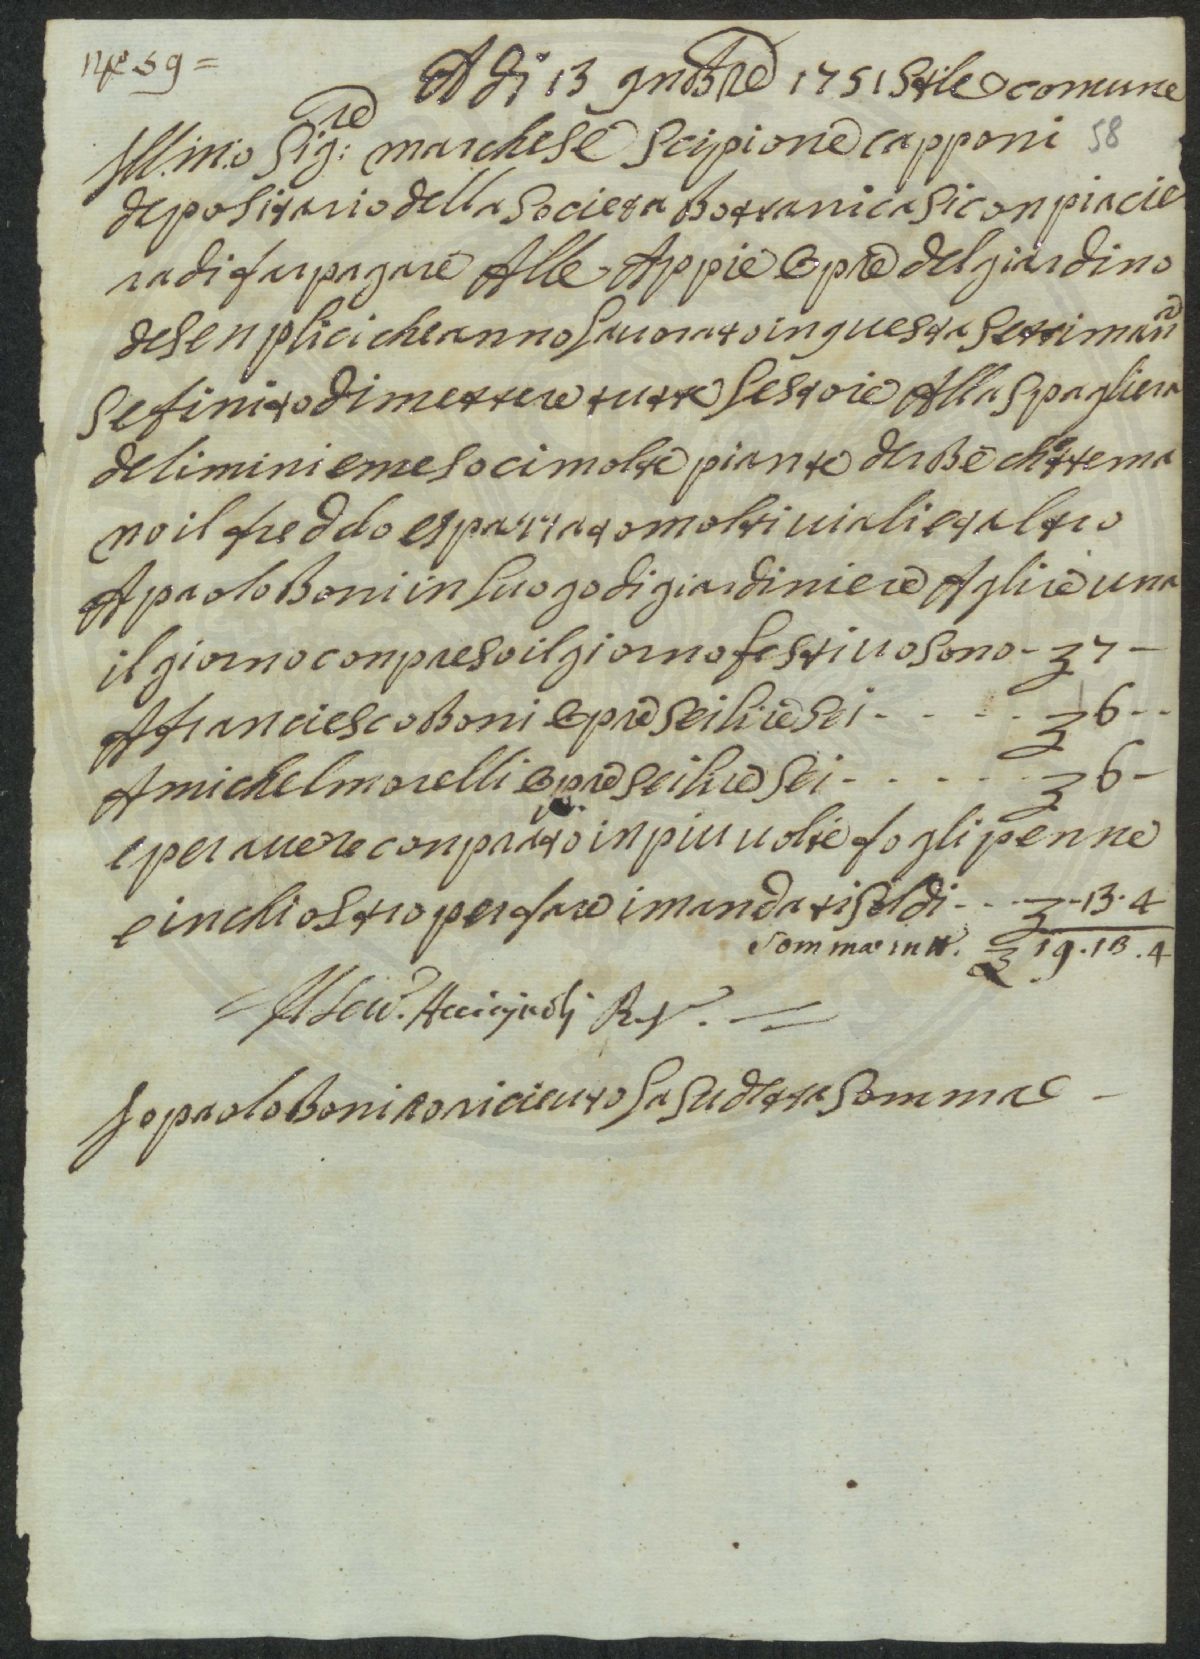 N° 59 =
A di 13 9mbre 1751 Stile comune
58
Ill.mo Sig:re marchese Scipione capponi
depositario della Societa Bottanica Si conpiacie
ra di far pagare Alle Appie Opre del giardino
de Senplici che anno Lauorato in questa Settimana
Se finito di mettere tutte Le Stoie Alla Spagliera
de limini e mesoci molte piante derbe che tema
no il freddo e spazzato molti uiali et altro
A paolo Boni in Luogo di giardiniere A lire una
il giorno conpreso il giorno festiuo Sono - 7 -
A franciesco Boni Opre Sei lire Sei - - - - 6 - -
A michel morelli Opre Sei lire Sei - - - - - 6 -
e per auere conprato in piu uolte fogli penne
e inchiostro per fare i mandati Soldi - - - - 13 . 4
Somma in tt. 19 . 13 . 4
Io paolo Boni o riceuto La Sudetta Somma -